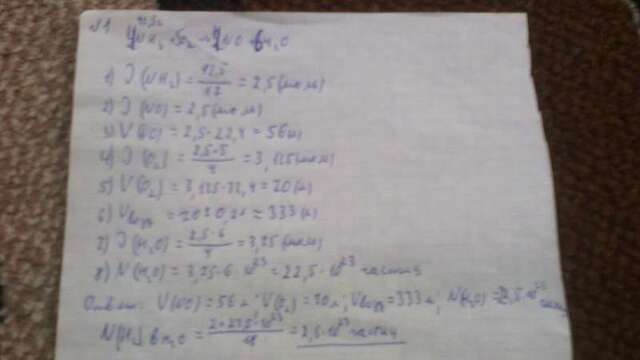 №1
4NH₃ + 5O₂ → 4NO + 6H₂O
1) ν(NH₃) = 42,5/17 = 2,5 (моль)
2) ν(NO) = 2,5 (моль)
3) V(NO) = 2,5·22,4 = 56 (л)
4) ν(O₂) = 2,5·5/4 = 3,125 (моль)
5) V(O₂) = 3,125·22,4 = 70 (л)
6) Vвозд = 70:0,21 = 333 (л)
7) ν(H₂O) = 2,5·6/4 = 3,75 (моль)
8) N(H₂O) = 3,75·6·10²³ = 22,5·10²³ частиц
Ответ: V(NO) = 56 л; V(O₂) = 70 л; Vвозд = 333 л; N(H₂O) = 22,5·10²³
в H₂O = = 2,5·10²³ частиц